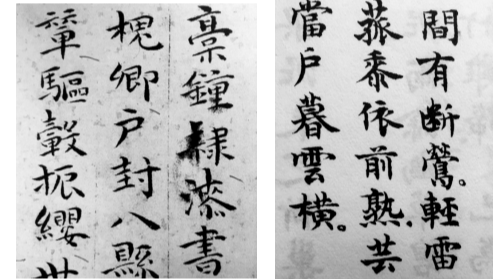 稾鐘隸漆書
槐卿户封八縣
輦驅轂振纓世
間有断鶯。輕雷
菰黍依前熟、芸
當户暮雲橫。